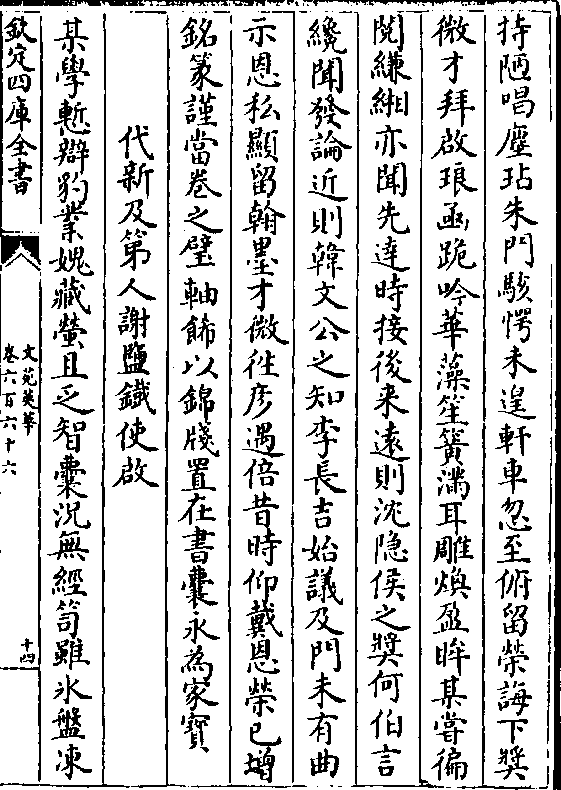 持陋唱塵玷朱門駭愕未遑軒車忽至俯留榮誨下奬
微才拜啟琅凾跪吟華藻笙簧滿耳雕煥盈眸某嘗徧
閲縑緗亦聞先達時接後来遠則沈隐侯之奬何伯言
纔聞發論近則韓文公之知李長吉始議及門未有曲
示恩私顯留翰墨才微徃彦遇倍昔時仰戴恩榮已增
銘篆謹當卷之璧軸飾以錦牋置在書囊永為家寳
代新及第人謝鹽鐵使啟
某學慙辯豹業媿藏螢且乏智囊況無經笥雖氷盤凍
欽定四庫全書
文苑英華
卷六百六十六
十四